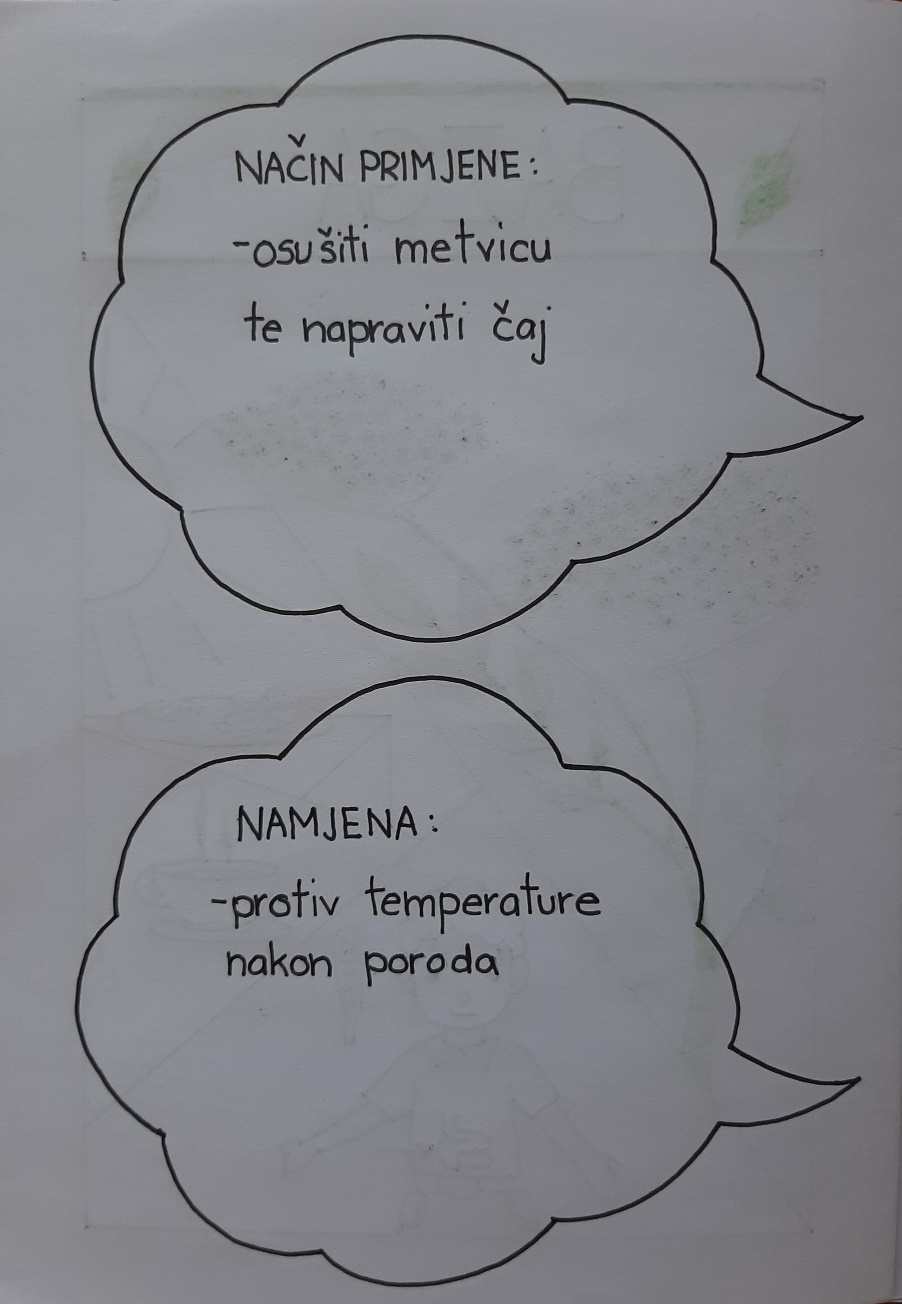 NAČIN PRIMJENE:
-osušiti metvicu
te napraviti čaj
NAMJENA:
-protiv temperature
nakon poroda